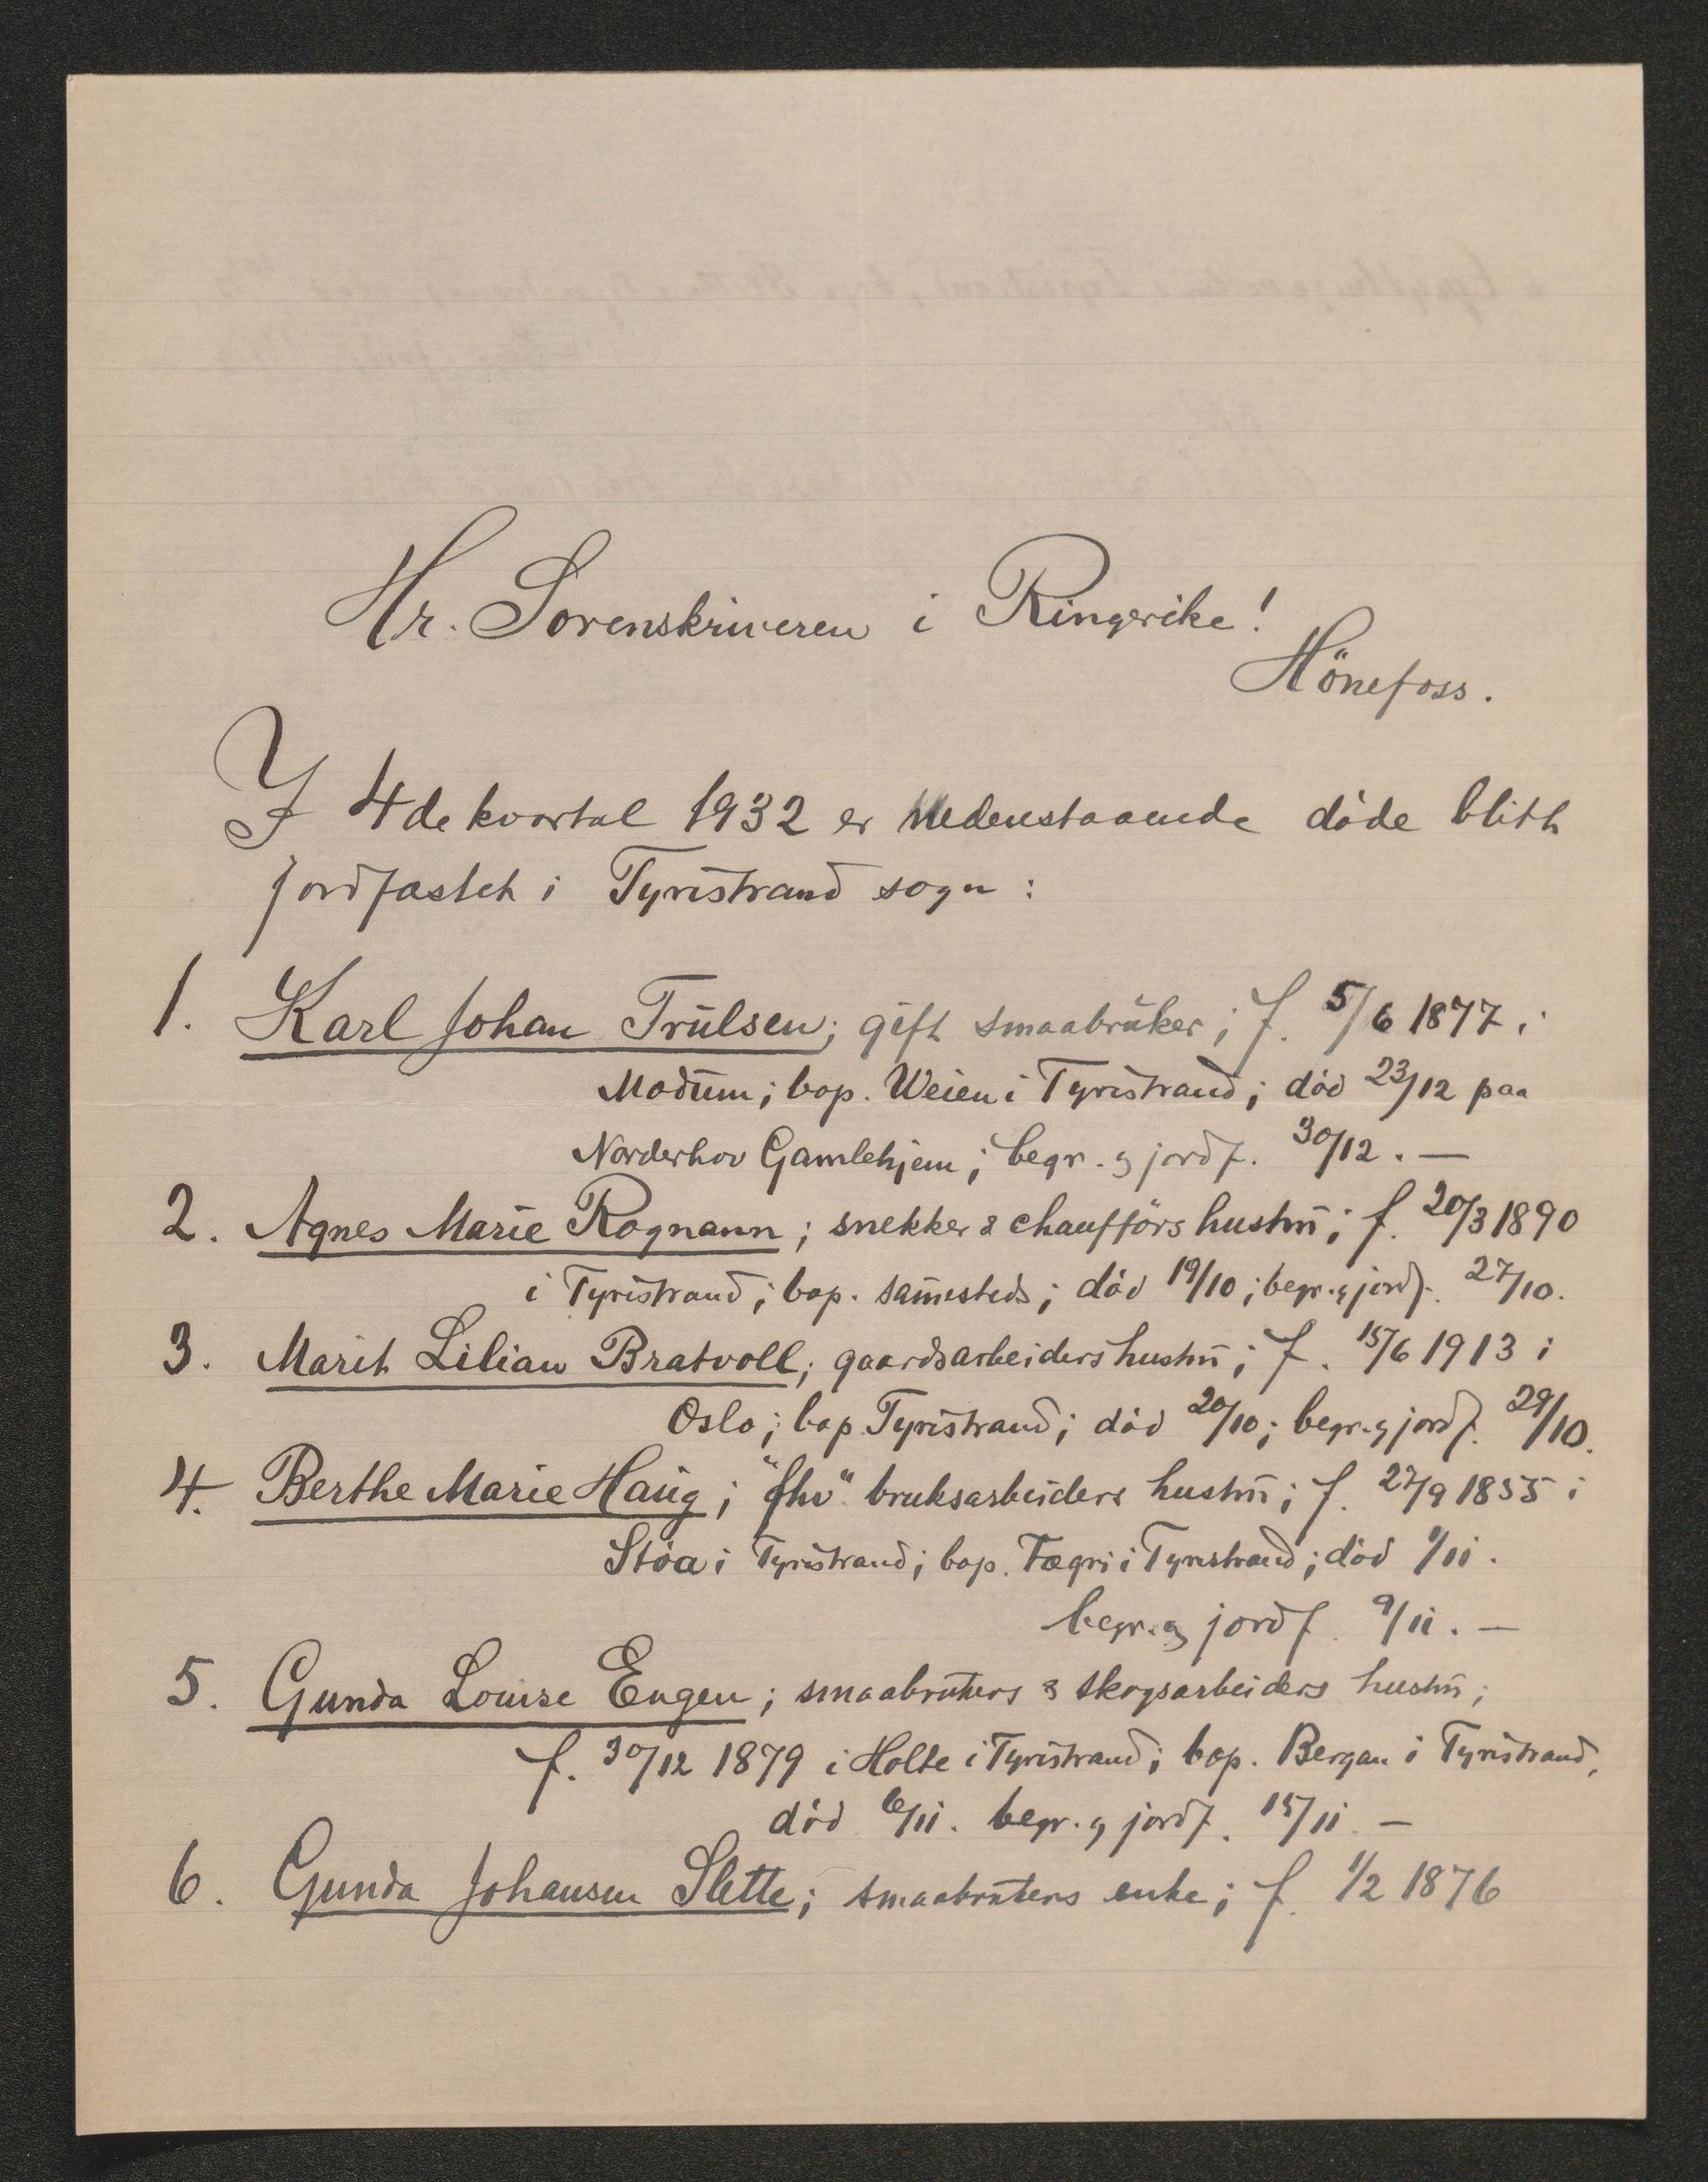 Hr. Sorenskriveren i Ringerike!
Hönefoss.
I 4de kvartal 1932 er nedenstaaende döde blith
jordfastet i Tyristrand sogn:
1. Karl Johan Trulsen; gift smaabruker; f. 5/6 1877 i
Modum; bop. Weien i Tyristrand; död 23/12 paa
Norderhov Gamlehjem; begr. og jordf. 30/12. —
2. Agnes Marie Rognann; snekker & chaufförs hustru; f. 20/3 1890
i Tyristrand; bop. sammesteds; död 19/10; begr. og jordf. 27/10.
3. Marit Lilian Bratvoll; gaardsarbeiders hustru; f. 15/6 1913 i
Oslo; bop. Tyristrand; död 20/10; begr. og jordf. 29/10.
4. Berthe Marie Haug; "fhv" bruksarbeiders hustru; f. 27/9 1855 i
Stöa i Tyristrand; bop. Fægri i Tyristrand; död 1/11.
begr. og jordf. 9/11. —
5. Gunda Louise Engen; smaabrukers & skogsarbeiders hustru;
f. 30/12 1879 i Holte i Tyristrand; bop. Bergan i Tyristrand,
död 6/11. begr. og jordf. 15/11. —
6. Gunda Johansen Slette; smaabrukers enke; f. 1/2 1876